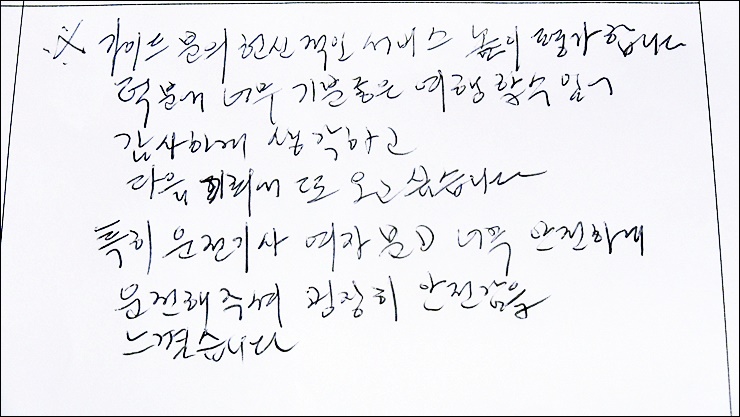 ※ 가이드 분의 헌신적인 서비스 높이 평가합니다
덕분에 너무 기분좋은 여행 할수 있어
감사하게 생각하고
다음 기회에 또 오고 싶습니다
특히 운전기사 여자분이 너무 안전하게
운전해주셔 굉장히 안전감을
느꼈습니다